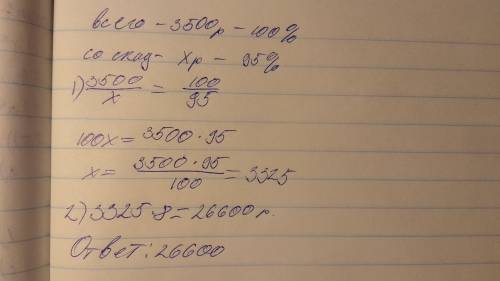 всего - 3500р - 100%
со скид - хр - 95%
1) 3500/х = 100/95
100х = 3500·95
х = 3500·95/100 = 3325
2) 3325·8 = 26600 р.
Ответ: 26600